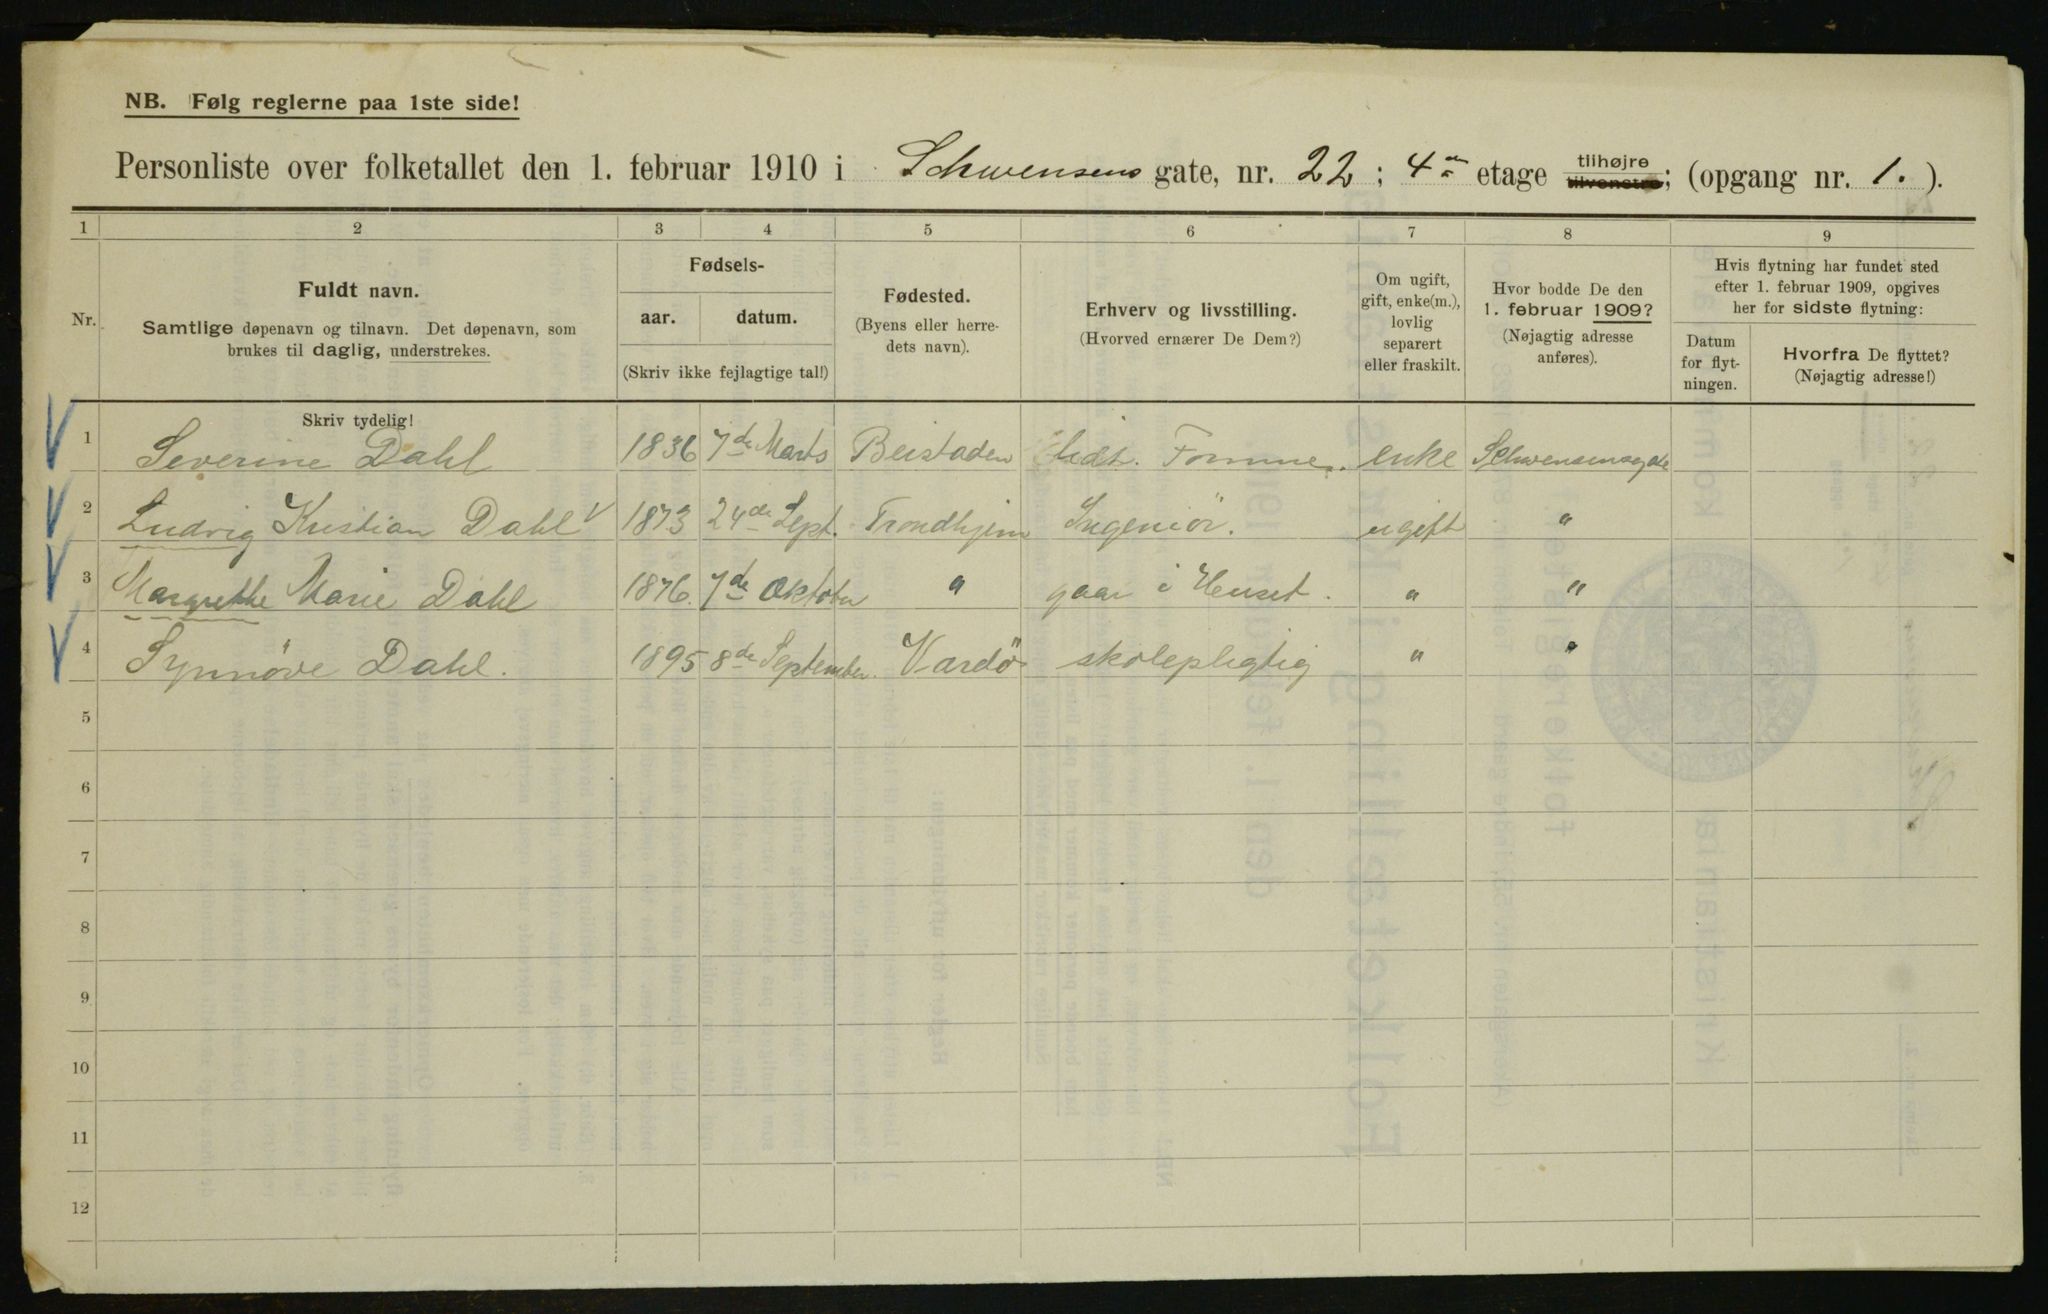 NB. Følg reglerne paa 1ste side!
Personliste over folketallet den 1. februar 1910 i Schwensens gate, nr. 22 ; 4de etage tilhøjre tilvenstre; (opgang nr. 1. ).
1 2 3 4 5 6 7 8 9
Nr.
Fuldt navn.
Samtlige døpenavn og tilnavn. Det døpenavn, som
brukes til daglig, understrekes.
Fødsels-
aar. datum.
(Skriv ikke fejlagtige tal!)
Fødested.
(Byens eller herre-
dets navn).
Erhverv og livsstilling.
(Hvorved ernærer De Dem?)
Om ugift,
gift, enke(m.),
lovlig
separert
eller fraskilt.
Hvor bodde De den
1. februar 1909?
(Nøjagtig adresse
anføres).
Hvis flytning har fundet sted
efter 1. februar 1909, opgives
her for sidste flytning:
Datum
for flyt-
ningen.
Hvorfra De flyttet?
(Nøjagtig adresse!)
Skriv tydelig!
1 Severine Dahl 1836 7de Marts Beistaden enke Schwensensgde
2 Ludvig Kristian Dahl 1873 24de Sept. Trondhjem Ingeniör. ugift "
3 Margrethe Marie Dahl 1876. 7de Oktober " gaar i Huset. " "
4 Synnöve Dahl. 1895 8de September. Vardö skolepligtig " "
5
6
7
8
9
10
11
12